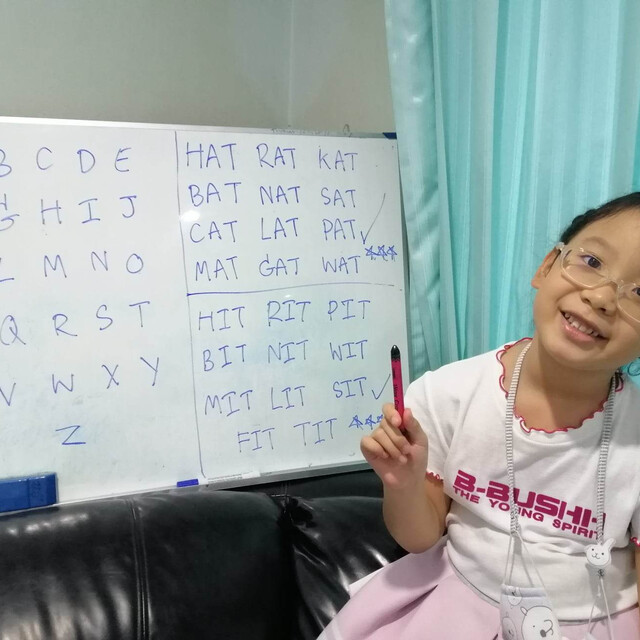 B C D E
G H I J
L M N O
Q R S T
V W X Y
Z
HAT RAT KAT
BAT NAT SAT
CAT LAT PAT
MAT GAT WAT
HIT RIT PIT
BIT NIT WIT
MIT LIT SIT
FIT TIT
B-BUSHI-
THE YOUNG SPIRIT